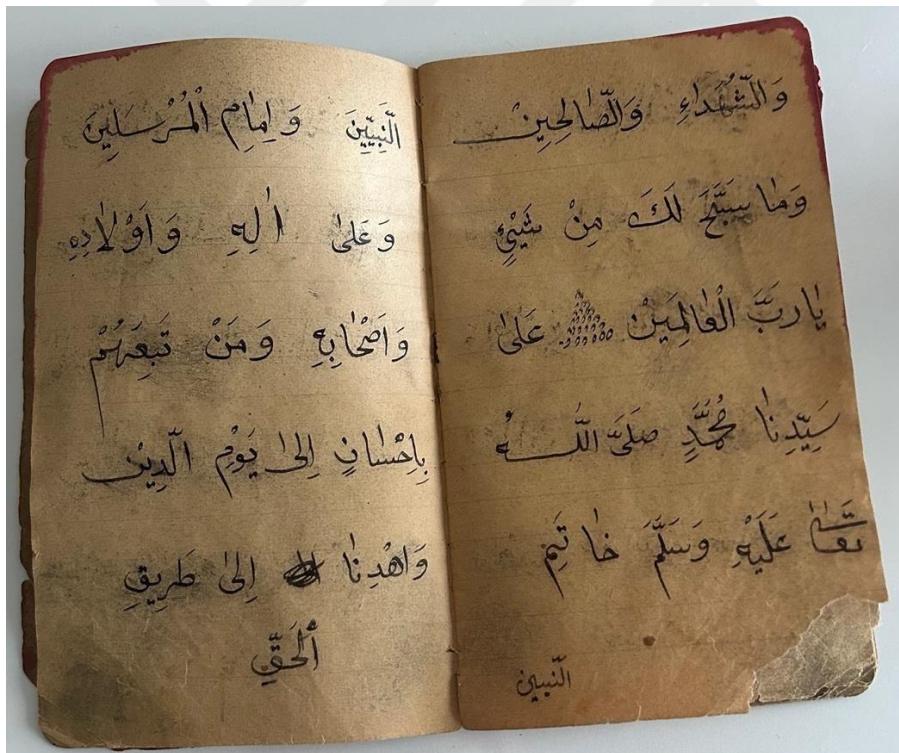 وَالشُّهَدَاءِ وَالصَّالِحِينْ
وَمَا سَبَّحَ لَكَ مِنْ شَيْئٍ
يَا رَبَّ الْعَالَمِينْ عَلَى
سَيِّدِنَا مُحَمَّدٍ صَلَّى اللّٰهُ
تَعَالَى عَلَيْهِ وَسَلَّمَ خَاتَمِ
النبيين
النَّبِيِّينَ وَاِمَامِ الْمُرْسَلِينَ
وَعَلَى اٰلِهِ وَاَوْلَادِهِ
وَاَصْحَابِهِ وَمَنْ تَبِعَهُمْ
بِاِحْسَانٍ اِلَى يَوْمِ الدِّينْ
وَاهْدِنَا اِلَى طَرِيقِ
الْحَقِّ